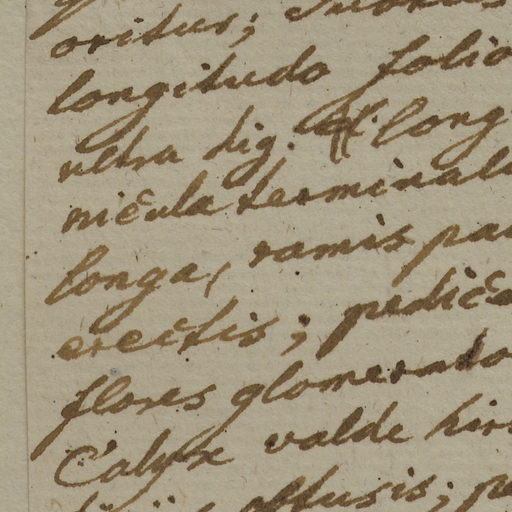 oritur;
longitudo folio
ultra dig. long
nicula terminali
longa, ramis pa
erectis; pedice
flores glomerado
Calyx valde hir
obtusis; p